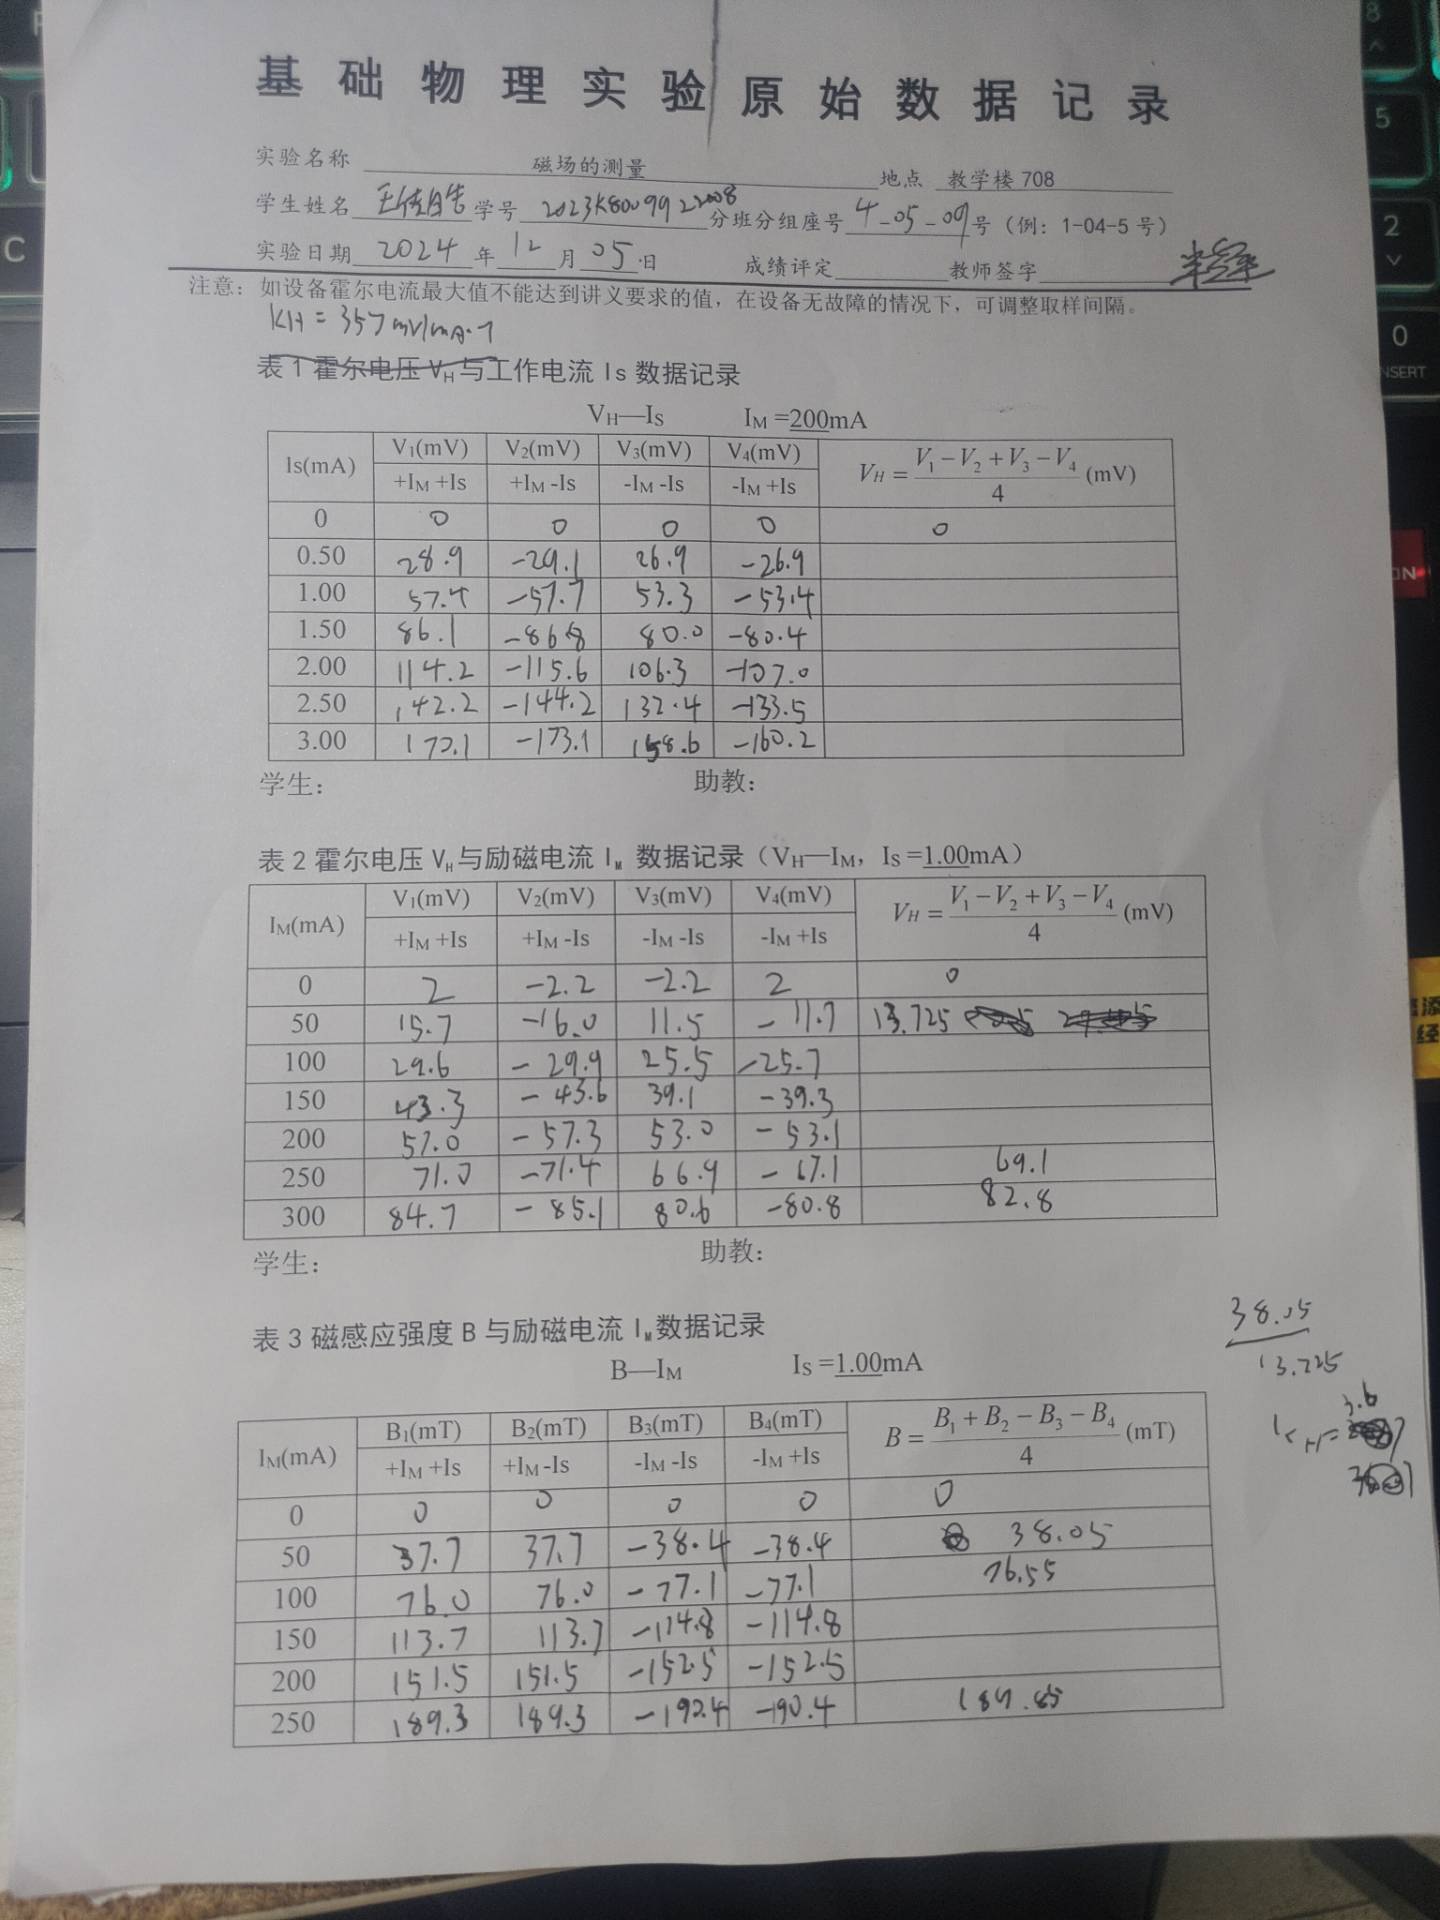 基础物理实验原始数据记录
实验名称 磁场的测量 地点 教学楼 708
学生姓名 学号 2023K8009922008 分班分组座号 4-05-09 号（例：1-04-5 号）
实验日期 2024 年 12 月 05 日 成绩评定 教师签字
注意：如设备霍尔电流最大值不能达到讲义要求的值，在设备无故障的情况下，可调整取样间隔。
KH = 357 mV/mA·T
表 1 霍尔电压 VH 与工作电流 Is 数据记录
VH—IS IM =200mA
Is(mA) V1(mV) V2(mV) V3(mV) V4(mV) VH = (V1 − V2 + V3 − V4)/4 (mV)
+IM +Is +IM -Is -IM -Is -IM +Is
0 0 0 0 0 0
0.50 28.9 -29.1 26.9 -26.9
1.00 57.4 -57.7 53.3 -53.4
1.50 86.1 -86.8 80.0 -80.4
2.00 114.2 -115.6 106.3 -107.0
2.50 142.2 -144.2 132.4 -133.5
3.00 170.1 -173.1 158.6 -160.2
学生： 助教：
表 2 霍尔电压 VH 与励磁电流 IM 数据记录（VH—IM，IS =1.00mA）
IM(mA) V1(mV) V2(mV) V3(mV) V4(mV) VH = (V1 − V2 + V3 − V4)/4 (mV)
+IM +Is +IM -Is -IM -Is -IM +Is
0 2 -2.2 -2.2 2 0
50 15.7 -16.0 11.5 -11.7 13.725
100 29.6 -29.9 25.5 -25.7
150 43.3 -43.6 39.1 -39.3
200 57.0 -57.3 53.0 -53.1
250 71.0 -71.4 66.9 -67.1 69.1
300 84.7 -85.1 80.6 -80.8 82.8
学生： 助教：
表 3 磁感应强度 B 与励磁电流 IM 数据记录
B—IM IS =1.00mA
38.05
13.725
3.6
KH=
IM(mA) B1(mT) B2(mT) B3(mT) B4(mT) B = (B1 + B2 − B3 − B4)/4 (mT)
+IM +Is +IM -Is -IM -Is -IM +Is
0 0 0 0 0 0
50 37.7 37.7 -38.4 -38.4 38.05
100 76.0 76.0 -77.1 -77.1 76.55
150 113.7 113.7 -114.8 -114.8
200 151.5 151.5 -152.5 -152.5
250 189.3 189.3 -190.4 -190.4 189.85